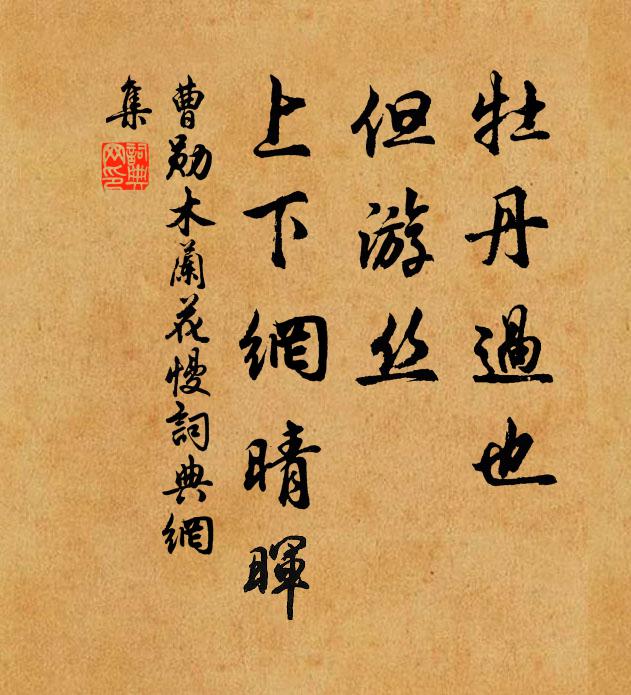 牡丹過也
但游丝
上下網晴暉
曹勛木蘭花慢詞典網
集
詞典網印